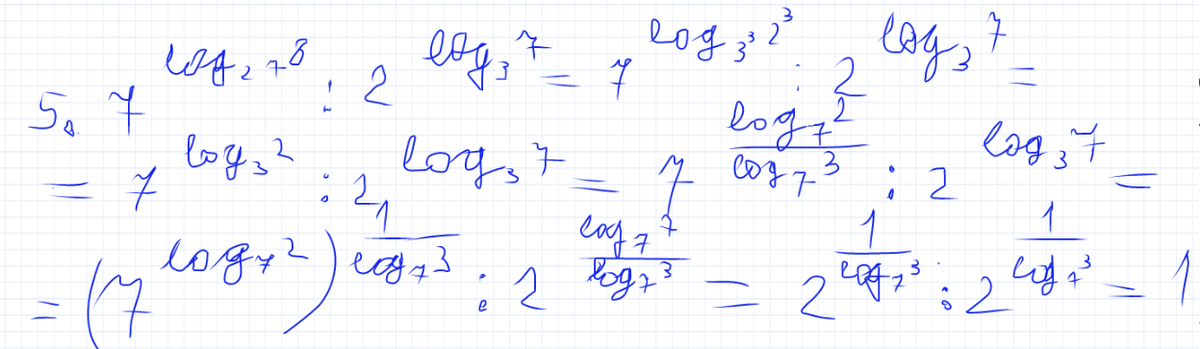 5. 7^{log_{27} 8} : 2^{log_3 7} = 7^{log_{3^3} 2^3} : 2^{log_3 7} =
= 7^{log_3 2} : 2^{log_3 7} = 7^{\frac{log_7 2}{log_7 3}} : 2^{log_3 7} =
= (7^{log_7 2})^{\frac{1}{log_7 3}} : 2^{\frac{log_7 7}{log_7 3}} = 2^{\frac{1}{log_7 3}} : 2^{\frac{1}{log_7 3}} = 1